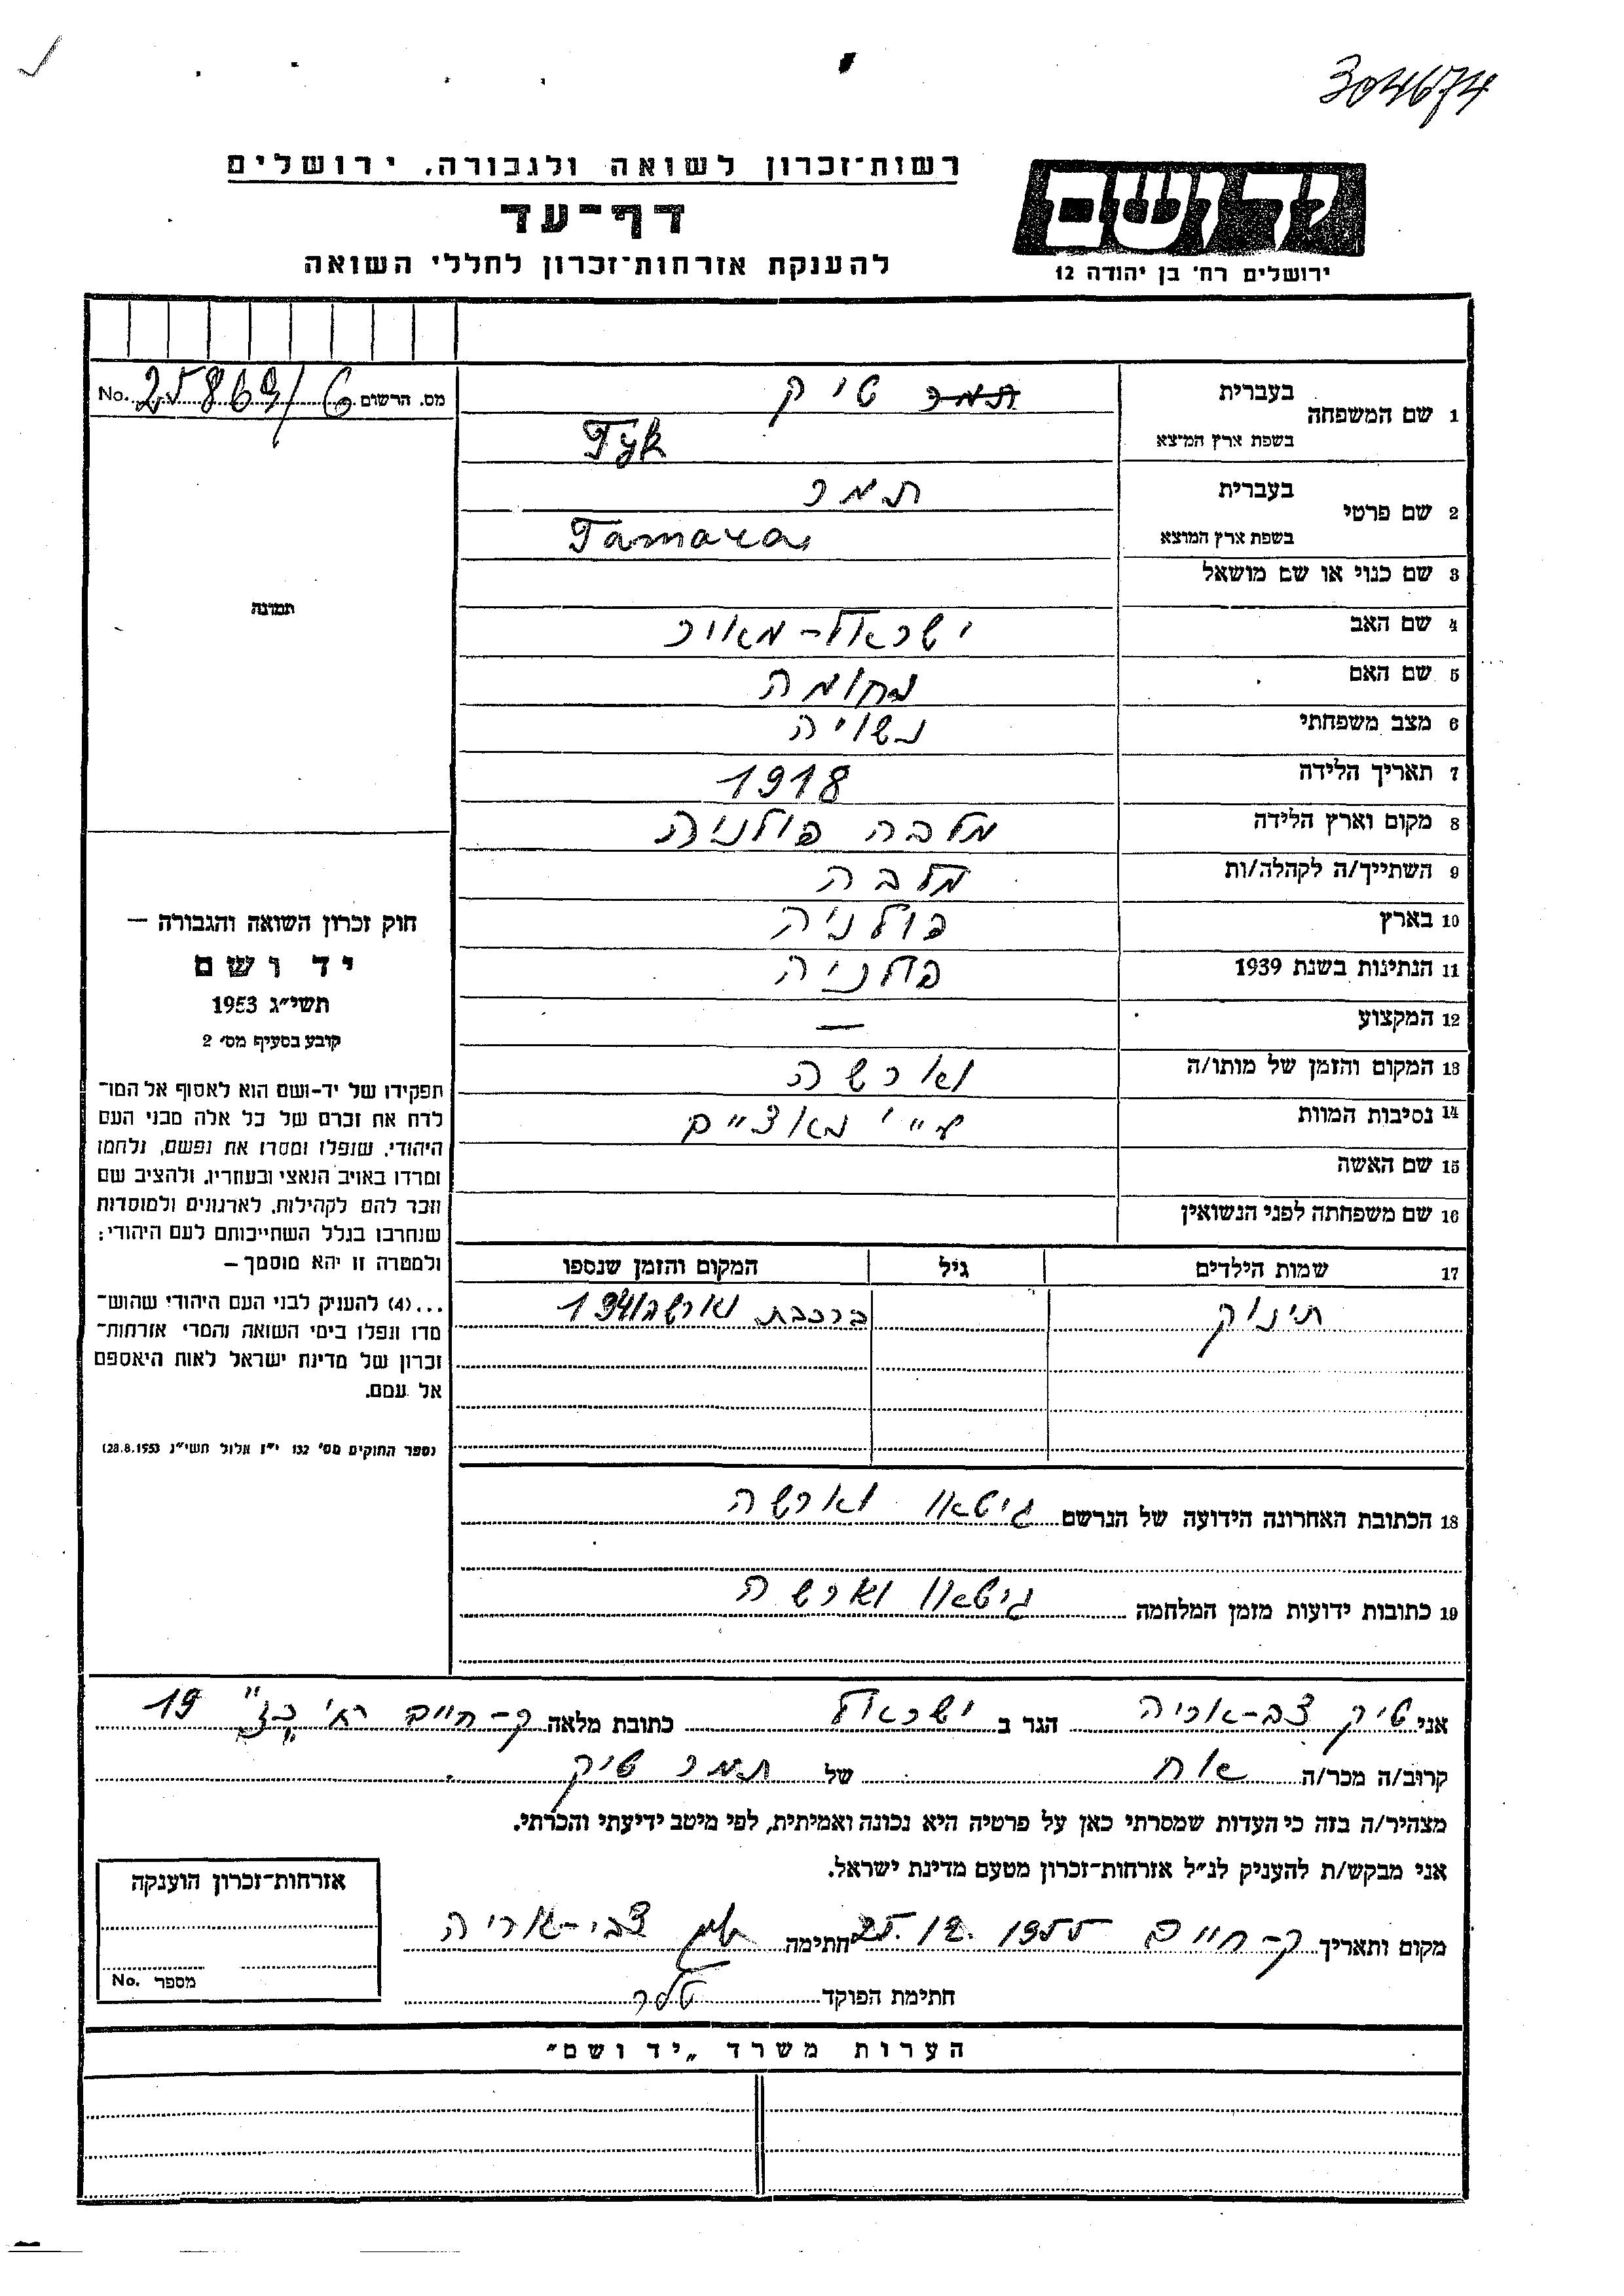 304674
רשות־זכרון לשואה ולגבורה, ירושלים
דף־עד
להענקת אזרחות־זכרון לחללי השואה
יד ושם
ירושלים רח' בן יהודה 12
מס. הרשום 25869/6 No.
1 שם המשפחה
בעברית תמר טיק
בשפת ארץ המוצא Tyk
2 שם פרטי
בעברית תמר
בשפת ארץ המוצא Tamara
3 שם כנוי או שם מושאל
4 שם האב ישראל-מאיר
5 שם האם נחומה
6 מצב משפחתי נשויה
7 תאריך הלידה 1918
8 מקום וארץ הלידה מלבה פולניה
9 השתייך/ה לקהלה/ות מלבה
10 בארץ פולניה
11 הנתינות בשנת 1939 פולניה
12 המקצוע —
13 המקום והזמן של מותו/ה וארשה
14 נסיבות המוות ע"י נאצים
15 שם האשה
16 שם משפחתה לפני הנשואין
17 שמות הילדים גיל המקום והזמן שנספו
תינוק ברכבת וארשה 1941
18 הכתובת האחרונה הידועה של הנרשם גיטאו וארשה
19 כתובות ידועות מזמן המלחמה גיטאו וארשה
תמונה
חוק זכרון השואה והגבורה —
יד ושם
תשי"ג 1953
קובע בסעיף מס' 2
תפקידו של יד-ושם הוא לאסוף אל המו־
לדת את זכרם של כל אלה מבני העם
היהודי, שנפלו ומסרו את נפשם, נלחמו
ומרדו באויב הנאצי ובעוזריו, ולהציב שם
וזכר להם לקהילות, לארגונים ולמוסדות
שנחרבו בגלל השתייכותם לעם היהודי;
ולמטרה זו יהא מוסמך —
...(4) להעניק לבני העם היהודי שהוש־
מדו ונפלו בימי השואה והמרי אזרחות־
זכרון של מדינת ישראל לאות היאספם
אל עמם.
(ספר החוקים מס' 132 י"ז אלול תשי"ג 28.8.1953)
אני טיק צבי-אריה הגר ב ישראל כתובת מלאה ק-חיים רח' 19
קרוב/ה מכר/ה אח של תמר טיק
מצהיר/ה בזה כי העדות שמסרתי כאן על פרטיה היא נכונה ואמיתית, לפי מיטב ידיעתי והכרתי.
אני מבקש/ת להעניק לנ"ל אזרחות־זכרון מטעם מדינת ישראל.
מקום ותאריך ק-חיים 25.12.1955 חתימה טיק צבי-אריה
חתימת הפוקד
אזרחות־זכרון הוענקה
מספר No.
הערות משרד „יד ושם"